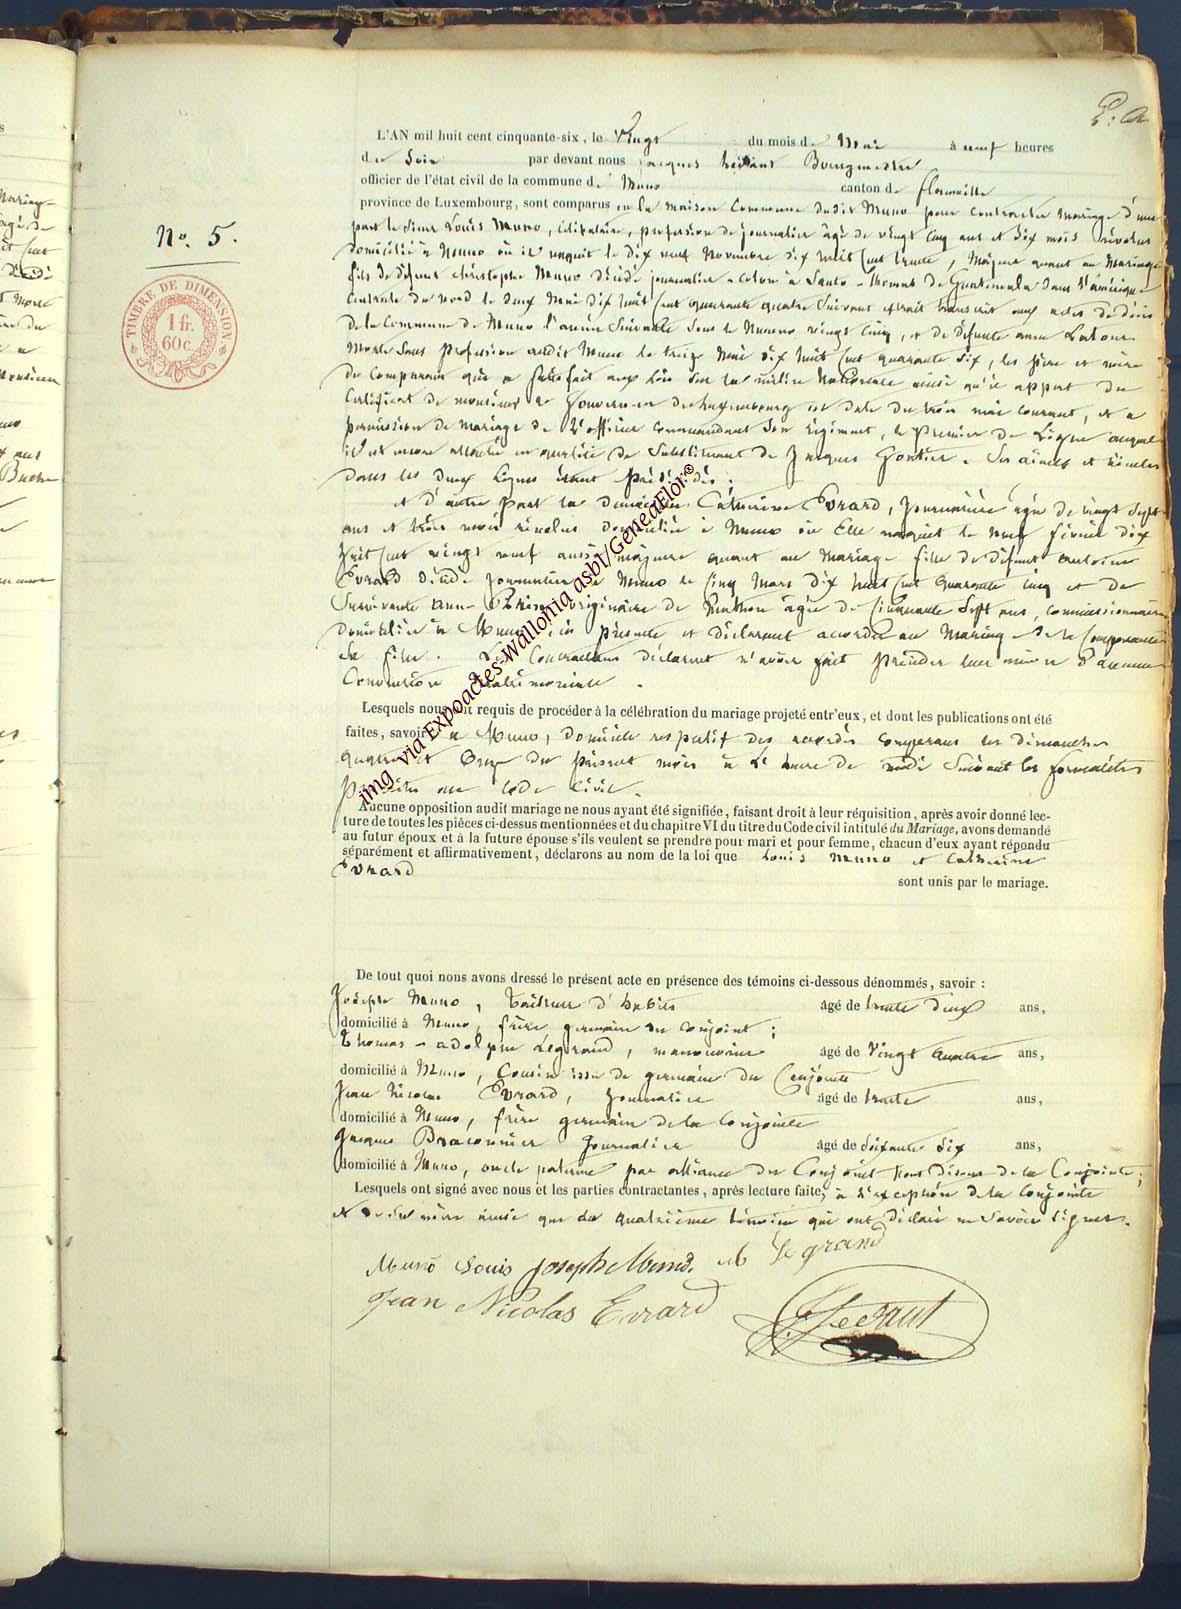 P. A
L'AN mil huit cent cinquante-six, le Vingt du mois de Mai à neuf heures
du Soir par devant nous Jacques Bourgmestre
officier de l'état civil de la commune de Muno canton de florenville
province de Luxembourg, sont comparus en la maison Commune dudit Muno pour contracter mariage d'une
part le sieur Louis Muno, célibataire, profession de journalier âgé de vingt cinq ans et six mois révolus
domicilié à Muno où il naquit le dix neuf Novembre dix huit Cent trente, Majeur quant au Mariage
fils de défunt christophe Muno décédé journalier colon à Santo-thomas de Guatemala dans l'amérique
Centrale du nord le deux Mai dix huit Cent quarante quatre suivant extrait transcrit aux actes de décès
de la Commune de Muno l'année Suivante sous le Numéro vingt Cinq, et de défunte anne Latour
Morte Sans profession audit Muno le treize Mai dix huit Cent quarante six, les père et mère
du Comparant qui a satisfait aux lois sur la milice Nationale ainsi qu'il appert du
Certificat de monsieur le Gouverneur de Luxembourg en date du trois mai courant, et a
permission de mariage de l'officier commandant son régiment, le premier de Ligne auquel
il est encore attaché en qualité de Substituant de Jacques Gontier. Ses aïeuls et aïeules
dans les deux lignes étant prédécédés;
et d'autre part la demoiselle Catherine Evrard, Journalière âgée de vingt Sept
ans et trois mois révolus domiciliée à Muno où Elle naquit le neuf février dix
huit Cent vingt neuf aussi majeure quant au mariage fille de défunt antoine
Evrard décédé journalier à Muno le Cinq Mars dix huit Cent quarante cinq et de
Survivante anne originaire de Mathon âgée de Cinquante Sept ans, commissionnaire
domiciliée à Muno, ici présente et déclarant accorder au Mariage de la Comparante
sa fille. Les Contractans déclarent n'avoir fait précéder leur union d'aucune
Convention Matrimoniale.
Lesquels nous ont requis de procéder à la célébration du mariage projeté entr'eux, et dont les publications ont été
faites, savoir: à Muno, domicile respectif des accordés comparans les dimanches
quatre et Onze du présent mois à l'heure de midi Suivant les formalités
prescrites au Code Civil.
Aucune opposition audit mariage ne nous ayant été signifiée, faisant droit à leur réquisition, après avoir donné lec-
ture de toutes les pièces ci-dessus mentionnées et du chapitre VI du titre du Code civil intitulé du Mariage, avons demandé
au futur époux et à la future épouse s'ils veulent se prendre pour mari et pour femme, chacun d'eux ayant répondu
séparément et affirmativement, déclarons au nom de la loi que Louis Muno et Catherine
Evrard
sont unis par le mariage.
De tout quoi nous avons dressé le présent acte en présence des témoins ci-dessous dénommés, savoir :
Joseph Muno, Tailleur d'habits âgé de trente deux ans,
domicilié à Muno, frère germain du conjoint;
Thomas-adolphe Legrand, manoeuvre âgé de Vingt quatre ans,
domicilié à Muno, Cousin issu de germain du Conjoint
Jean Nicolas Evrard, Journalier âgé de trente ans,
domicilié à Muno, frère germain de la Conjointe
Jacques Braconnier Journalier âgé de Soixante Six ans,
domicilié à Muno, oncle paternel par alliance du Conjoint de la Conjointe;
Lesquels ont signé avec nous et les parties contractantes, après lecture faite, à l'exception de la Conjointe
et de sa mère ainsi que du quatrième témoin qui ont déclaré ne Savoir Signer.
Muno Louis Joseph Muno. Legrand
Jean Nicolas Evrard
No. 5.
TIMBRE DE DIMENSION
1 fr.
60 c.
img via Expoactes-Wallonia asbl/GeneaFlor©